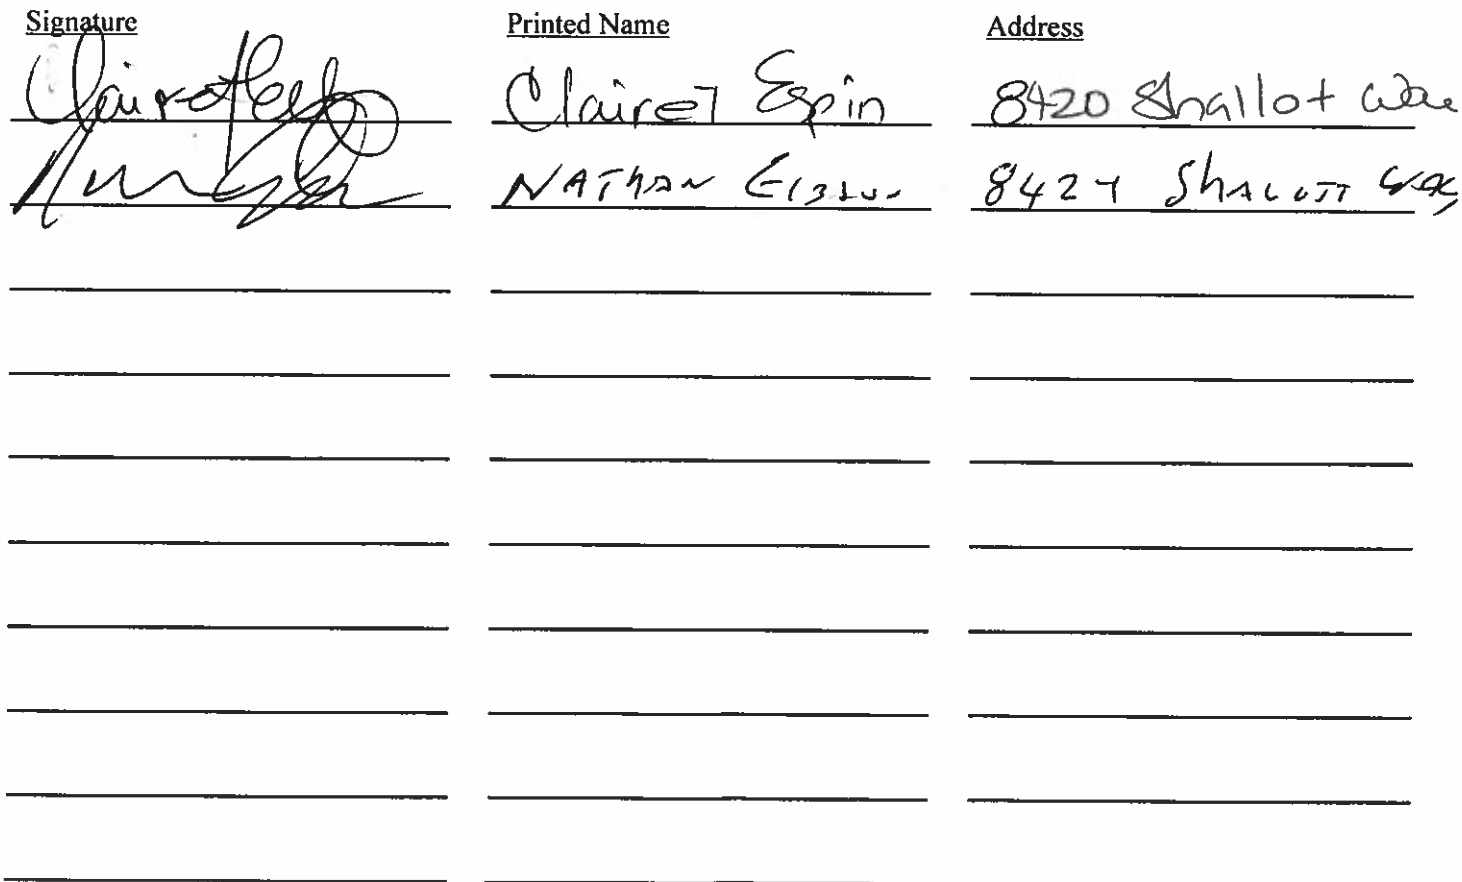 Signature Printed Name Address
Clairet Espin 8420 Shallot Way
NATHAN 8424 Shalott Way